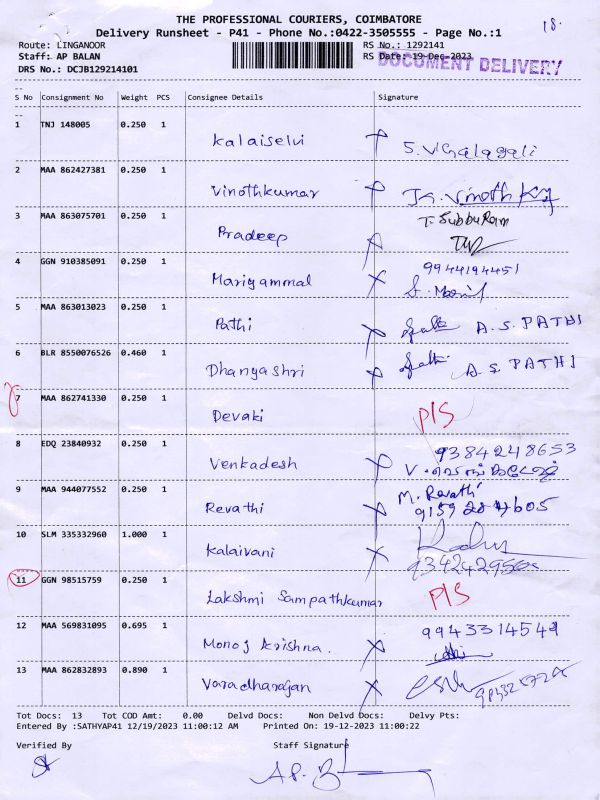 THE PROFESSIONAL COURIERS, COIMBATORE
18.
Delivery Runsheet - P41 - Phone No.:0422-3505555 - Page No.:1
Route: LINGANOOR RS No.: 1292141
Staff: AP BALAN RS Date: 19-Dec-2023
DOCUMENT DELIVERY
DRS No.: DCJB129214101
S No Consignment No Weight PCS Consignee Details Signature
1 TNJ 148005 0.250 1 Kalaiselvi S.
2 MAA 862427381 0.250 1 Vinothkumar Vinoth
3 MAA 863075701 0.250 1 Pradeep T. Subburam
4 GGN 910385091 0.250 1 Mariyammal 9944194451
5 MAA 863013023 0.250 1 Pathi A.S. PATHI
6 BLR 8550076526 0.460 1 Dhanyashri A.S. PATHI
7 MAA 862741330 0.250 1 Devaki P/S
8 EDQ 23840932 0.250 1 Venkadesh 9384248653
9 MAA 944077552 0.250 1 Revathi M. Revathi
10 SLM 335332960 1.000 1 Kalaivani
11 GGN 98515759 0.250 1 Lakshmi Sampathkumar P/S
12 MAA 569831095 0.695 1 Monoj Krishna.
13 MAA 862832893 0.890 1 Varadharajan
Tot Docs: 13 Tot COD Amt: 0.00 Delvd Docs: Non Delvd Docs: Delvy Pts:
Entered By :SATHYAP41 12/19/2023 11:00:12 AM Printed On: 19-12-2023 11:00:22
Verified By Staff Signature